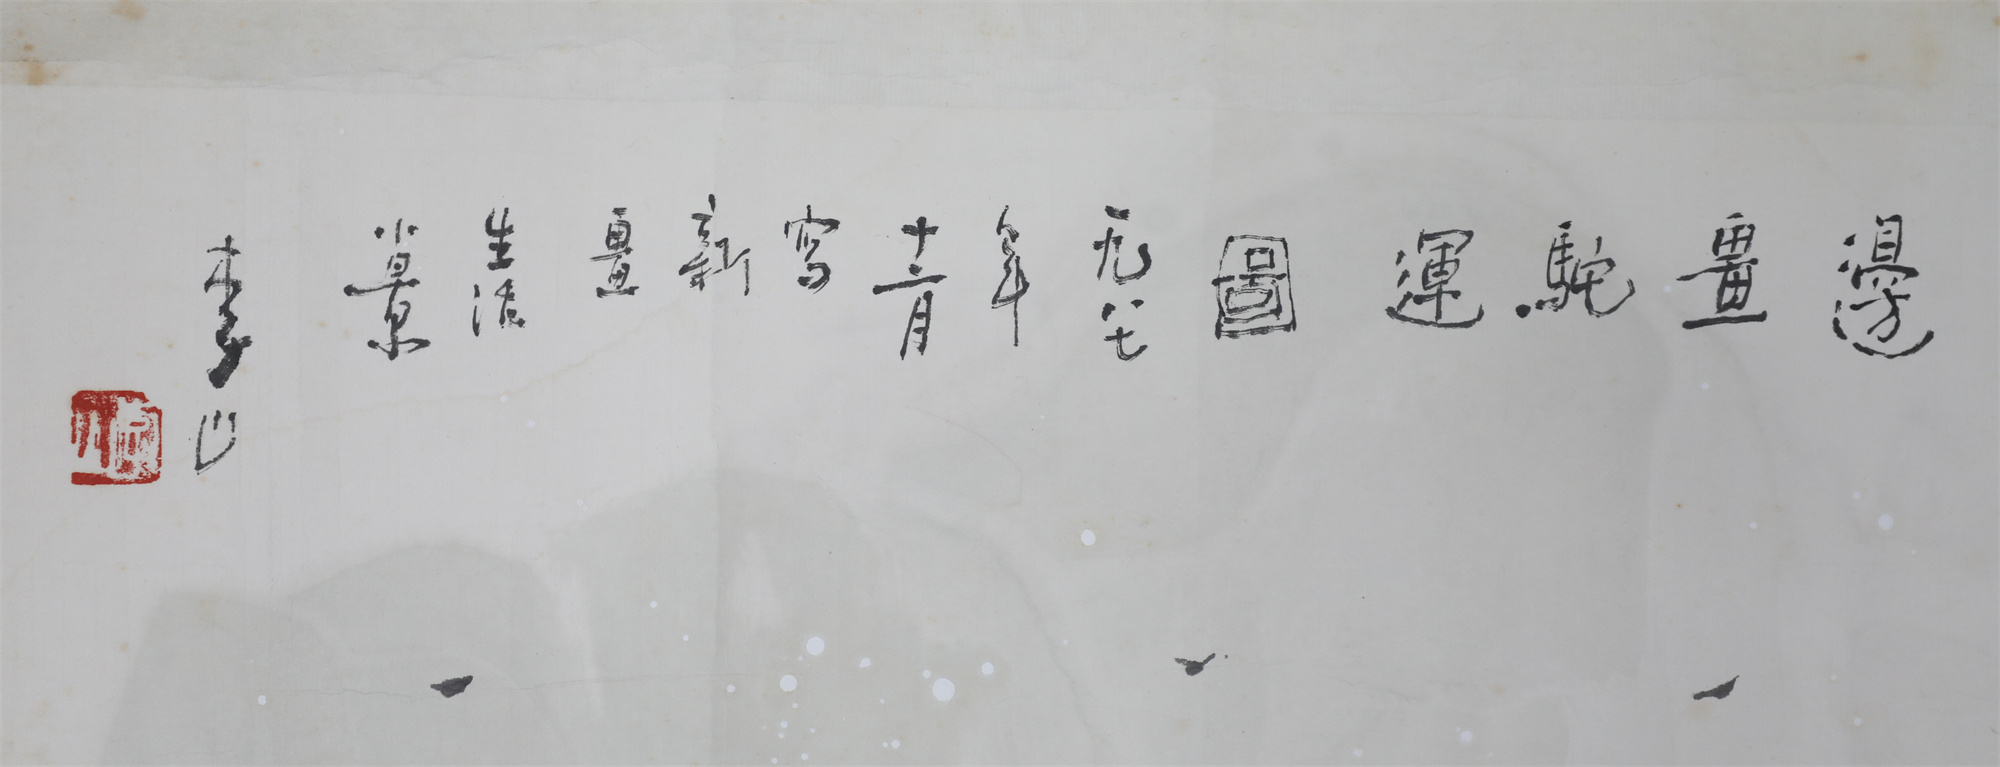 邊畺駝運圖
元八七年
十二月
寫新畺
生活
小景
李山